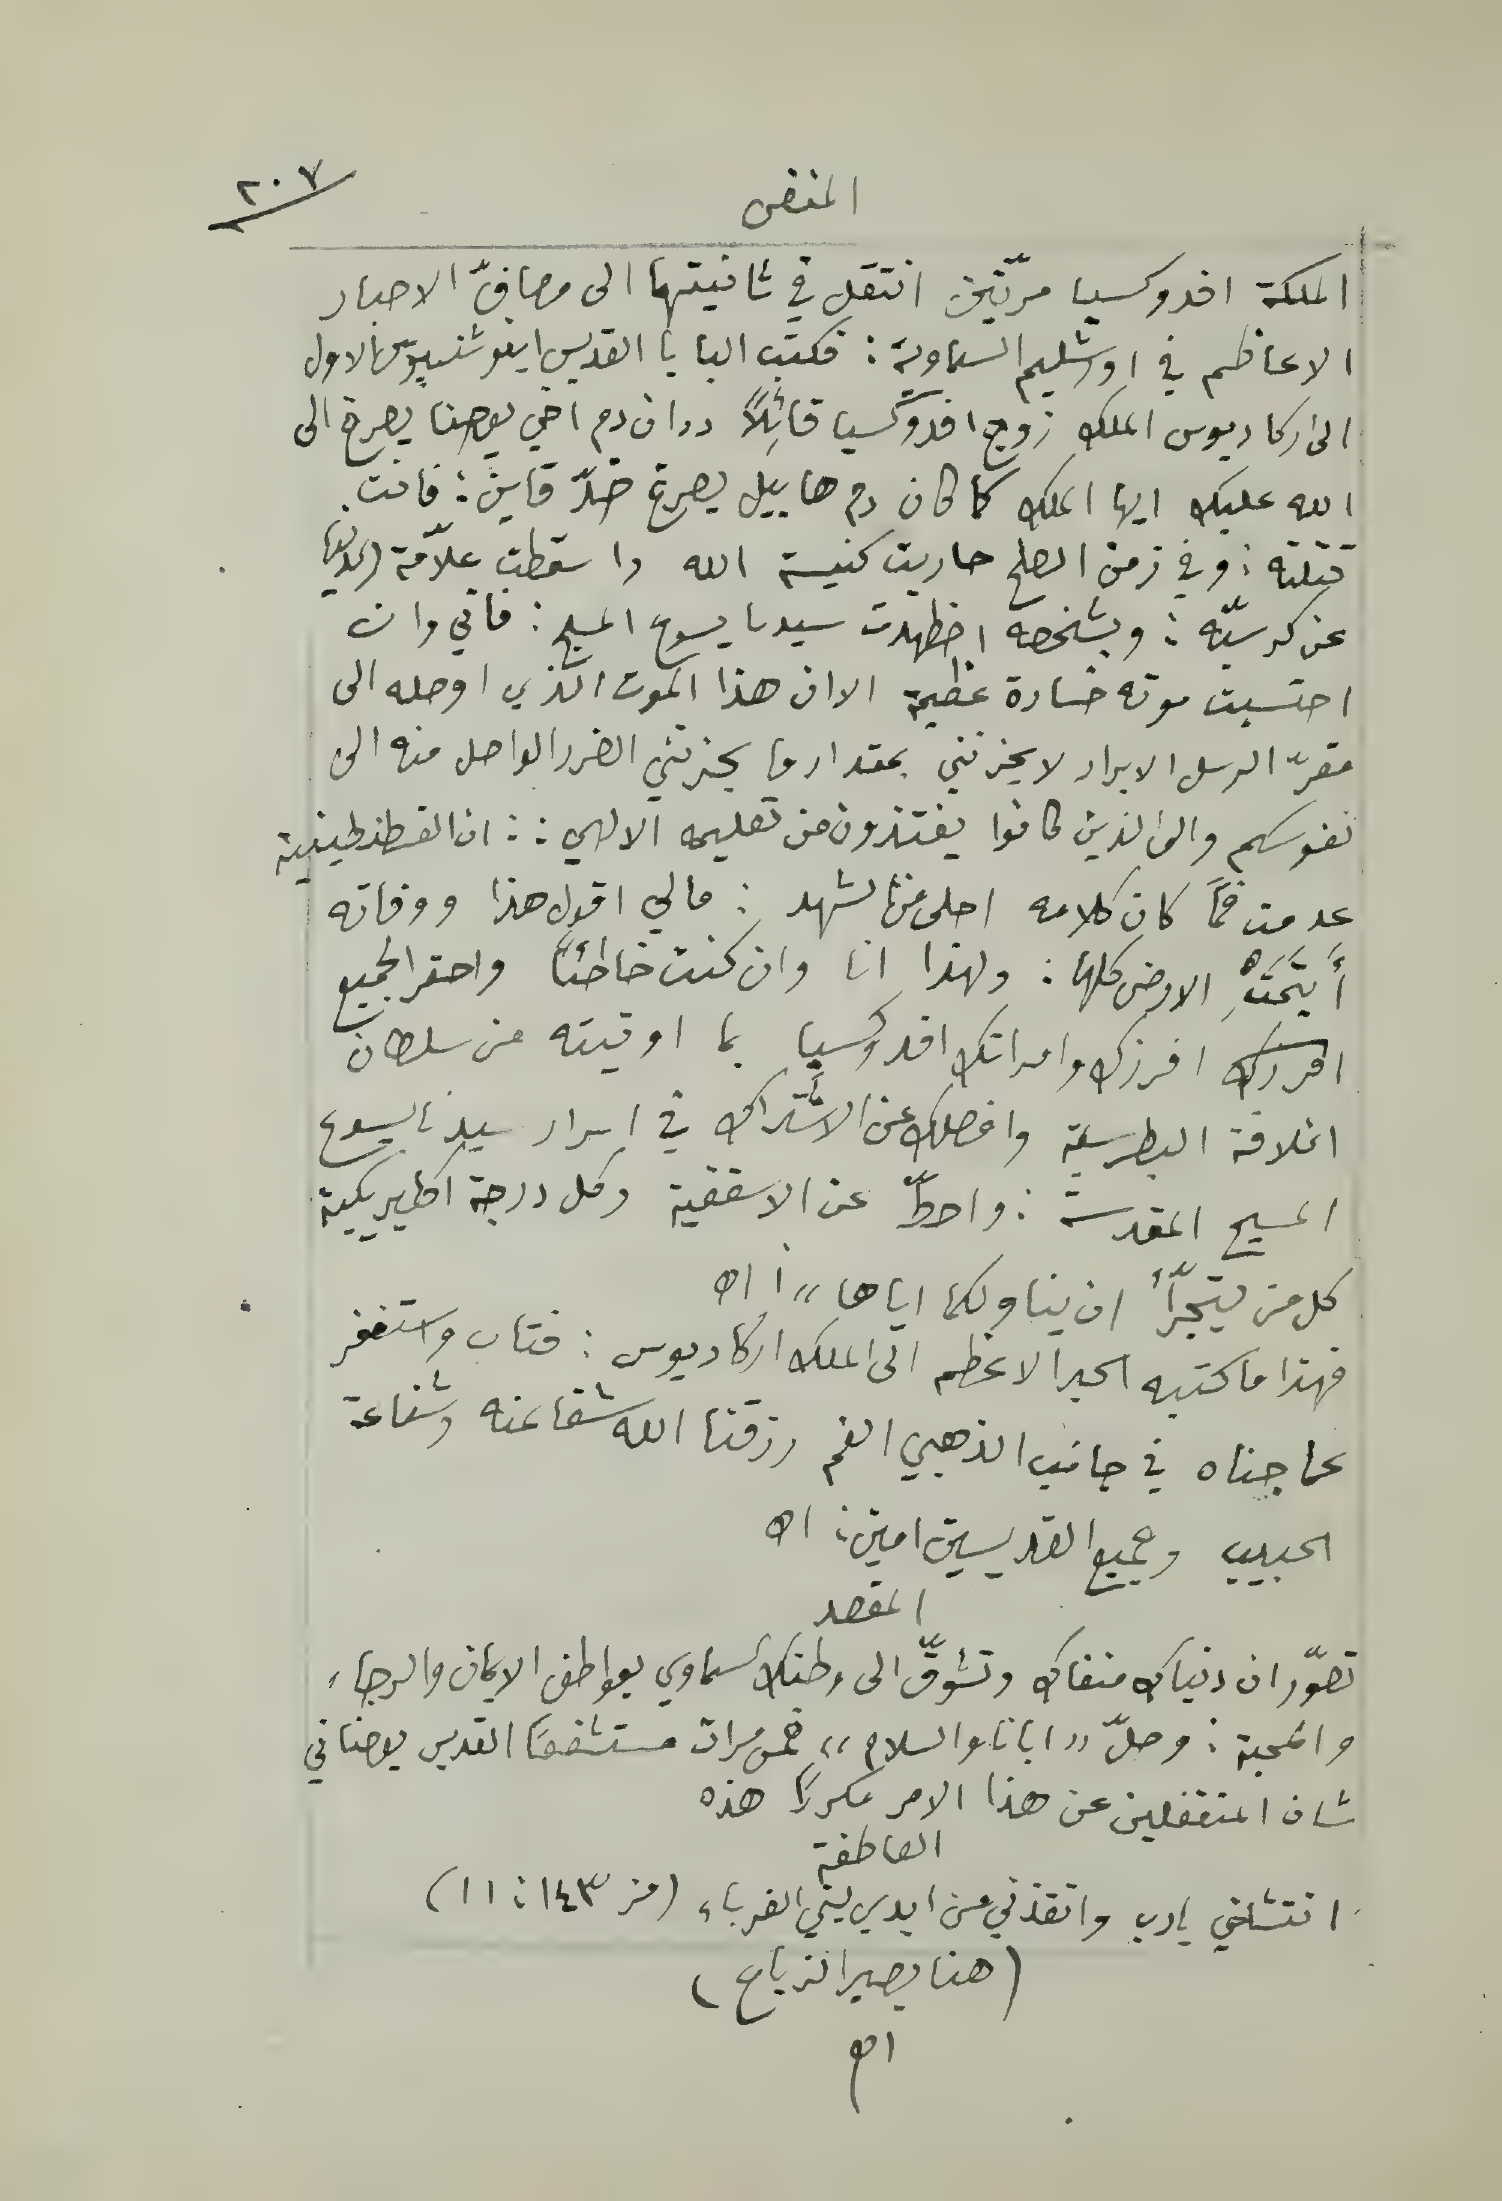 ٢٠٧
المنفى
الملكة افدوكسيا مرّتين انتقل في ثانيتها الى مصافّ الاحبار
الاعاظم في اورشليم السماوية : فكتب البابا القديس اينوشنسيوس الاول
الى اركاديوس الملك زوج افدوكسيا قائلاً ,, ان دم اخي يوحنا يصرخ الى
الله عليك ايها الملك كما كان دم هابيل يصرخ ضدّ قايين : فانت
قتلته : وفي زمن الصلح حاربت كنيسة الله واسقطت علاّمة
عن كرسيّه : وبشخصه اضطهدت سيدنا يسوع المسيح : فاني وان
احتسبت موته خسارة عظيمة الا ان هذا الموت الذي اوصله الى
مقرّ الرسل الابرار لا يحزنني بمقدار ما يحزنني الضرر الواصل منه الى
نفوسكم والى الذين كانوا يغتذون من تعليمه الالهي : : ان القسطنطينية
عدمت فمًا كان كلامه احلى من الشهد : مالي اقول هذا ووفاته
أَيتَمَتْ الارض كلها : ولهذا انا وان كنت خاطئًا واحقر الجميع
افرزك افرزك وامراتك افدوكسيا بما اوتيته من سلطان
الخلافة البطرسية وافصلك عن الاشتراك في اسرار سيدنا يسوع
المسيح المقدسة : واحطّ عن الاسقفية وكل درجة اكليريكية
كل من يتجرّأ ان يناولكما اياها ,, : اه
فهذا ما كتبه الحبر الاعظم الى الملك اركاديوس : فتاب واستغفر
عما جناه في جانب الذهبي الفم رزقنا الله شفاعته وشفاعة
الحبيب وجميع القديسين امين : اه
المقصد
تصوّر ان دنياك منفاك وتشوّق الى وطنك السماوي بعواطف الايمان والرجاء
والمحبة : وصلّ ,, ابانا والسلام ,, خمس مرات مستشفعًا القديس يوحنا في
شان المتغفلين عن هذا الامر مكررًا هذه
العاطفة
انتشلني يارب وانقذني من ايدي بني الغرباء (مز ١٤٣ : ١١)
(هنا يصير الزياح)
اه